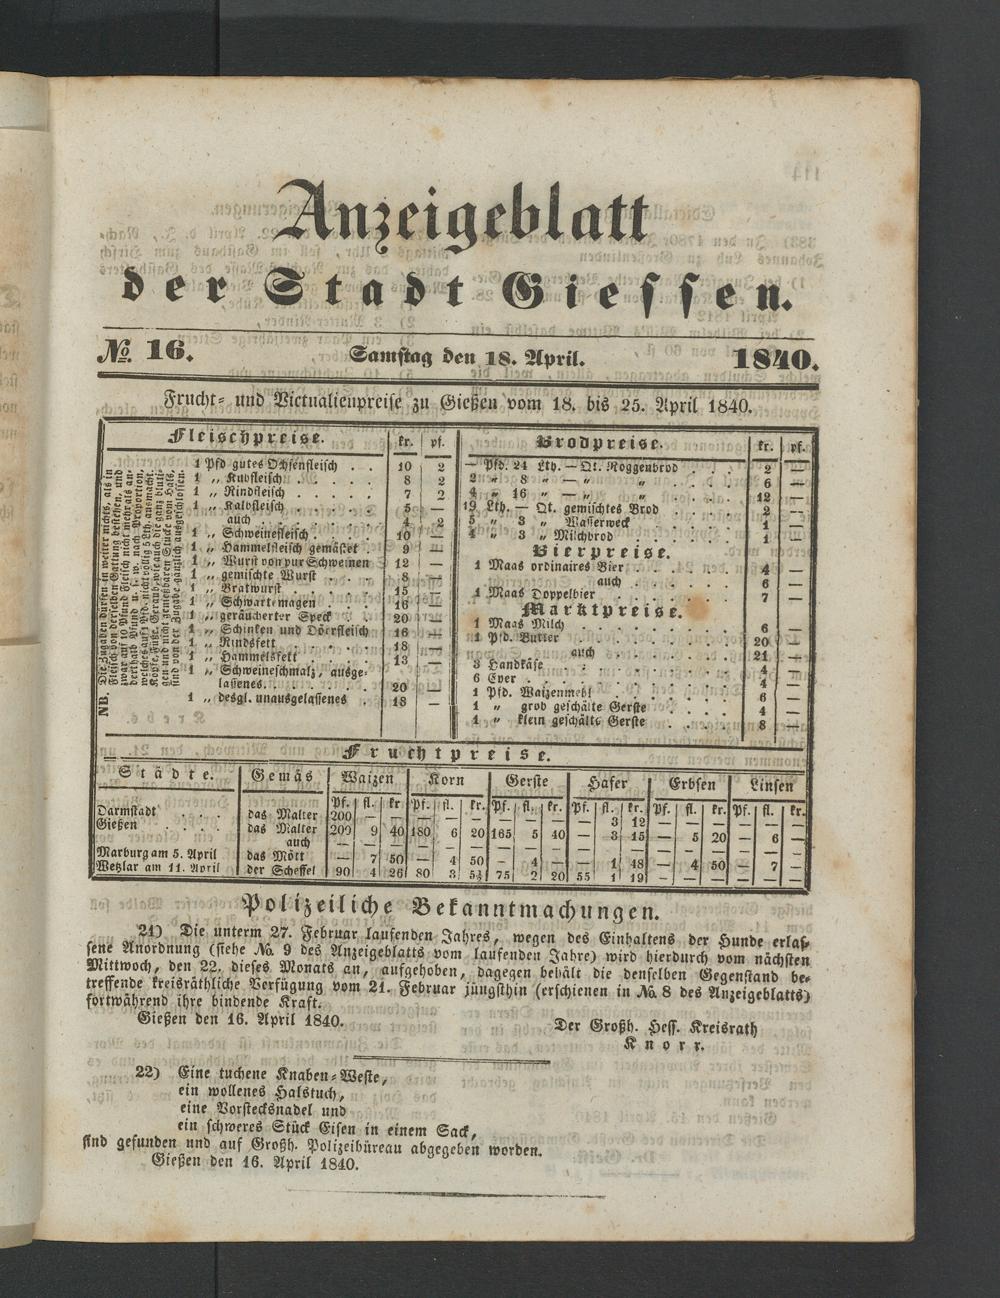 Anzeigeblatt
der Stadt Giessen.
No. 16. Samstag den 18. April. 1840.
Frucht- und Victualienpreise zu Gießen vom 18. bis 25. April 1840.
Fleischpreise. kr. pf.
1 Pfd gutes Ochsenfleisch . . 10 2
1 „ Kuhfleisch . . . . 8 2
1 „ Rindfleisch . . . . . 7 2
1 „ Kalbfleisch . . . . 5 —
auch . . . . 4 2
1 „ Schweinefleisch . . . . 10 —
1 „ Hammelfleisch gemästet . 9 —
1 „ Wurst von pur Schweinen 12 —
1 „ gemischte Wurst . . . 8 —
1 „ Bratwurst . . . . 15 —
1 „ Schwartemagen . . . 16 —
1 „ geräucherter Speck . . 20 —
1 „ Schinken und Dörrfleisch 16 —
1 „ Rindsfett . . . . 18 —
1 „ Hammelsfett . . . . 13 —
1 „ Schweineschmalz, ausge-
lassenes. . . . . 20 —
1 „ desgl. unausgelassenes . 18 —
NB. Die Zugaben dürfen in weiter nichts, als in
Fleisch von derselben Gattung bestehen, und
zwar auf 10 Pfund Fleisch nicht mehr als an-
derthalb Pfund u. s. w. nach Proportion,
welches auf 1 Pfd. nicht völlig 5 Lth. ausmacht.
sind von der Zugabe gänzlich ausgeschlossen.
Brodpreise. kr. pf.
— Pfd. 24 Lth. — Qt. Roggenbrod . . . 2 —
2 „ 8 „ — „ „ . . . . 6 —
4 „ 16 „ — „ „ . . . . 12 —
19 Lth. — Qt. gemischtes Brod . . . . 2 —
5 „ 3 „ Wasserweck . . . . 1 —
4 „ 3 „ Milchbrod . . . . 1 —
Bierpreise.
1 Maas ordinaires Bier . . . . . 4 —
auch . . . . . 6 —
1 Maas Doppelbier . . . . . 7 —
Marktpreise.
1 Maas Milch . . . . . . 6 —
1 Pfd. Butter . . . . . . 20 —
auch . . . . . 21 —
3 Handkäse . . . . . . 4 —
6 Eyer . . . . . . 4 —
1 Pfd. Waizenmehl . . . . . 6 —
1 „ grob geschälte Gerste . . . . 4 —
1 „ klein geschälte Gerste . . . . 8 —
Fruchtpreise.
Städte. Gemäs Waizen Korn Gerste Hafer Erbsen Linsen
Pf. fl. kr Pf. fl. kr. Pf. fl. kr. Pf. fl. kr. Pf. fl. kr. Pf. fl. kr.
Darmstadt . . . das Malter 200 — — — — — — — — — 3 12 — — — — — —
Gießen . . . . das Malter 209 9 40 180 6 20 165 5 40 — 3 15 — 5 20 — 6 —
auch — — — — — — — — — — — — — — — — — —
Marburg am 5. April das Mött — 7 50 — 4 50 — 4 — — 1 48 — 4 50 — 7 —
Wetzlar am 11. April der Scheffel 90 4 26 80 3 5½ 75 2 20 55 1 19 — — — — — —
Polizeiliche Bekanntmachungen.
21) Die unterm 27. Februar laufenden Jahres, wegen des Einhaltens der Hunde erlas-
sene Anordnung (siehe No. 9 des Anzeigeblatts vom laufenden Jahre) wird hierdurch vom nächsten
Mittwoch, den 22. dieses Monats an, aufgehoben, dagegen behält die denselben Gegenstand be-
treffende kreisräthliche Verfügung vom 21. Februar jüngsthin (erschienen in No. 8 des Anzeigeblatts)
fortwährend ihre bindende Kraft.
Gießen den 16. April 1840.
Der Großh. Hess. Kreisrath
Knorr.
22) Eine tuchene Knaben-Weste,
ein wollenes Halstuch,
eine Vorstecksnadel und
ein schweres Stück Eisen in einem Sack,
sind gefunden und auf Großh. Polizeibüreau abgegeben worden.
Gießen den 16. April 1840.